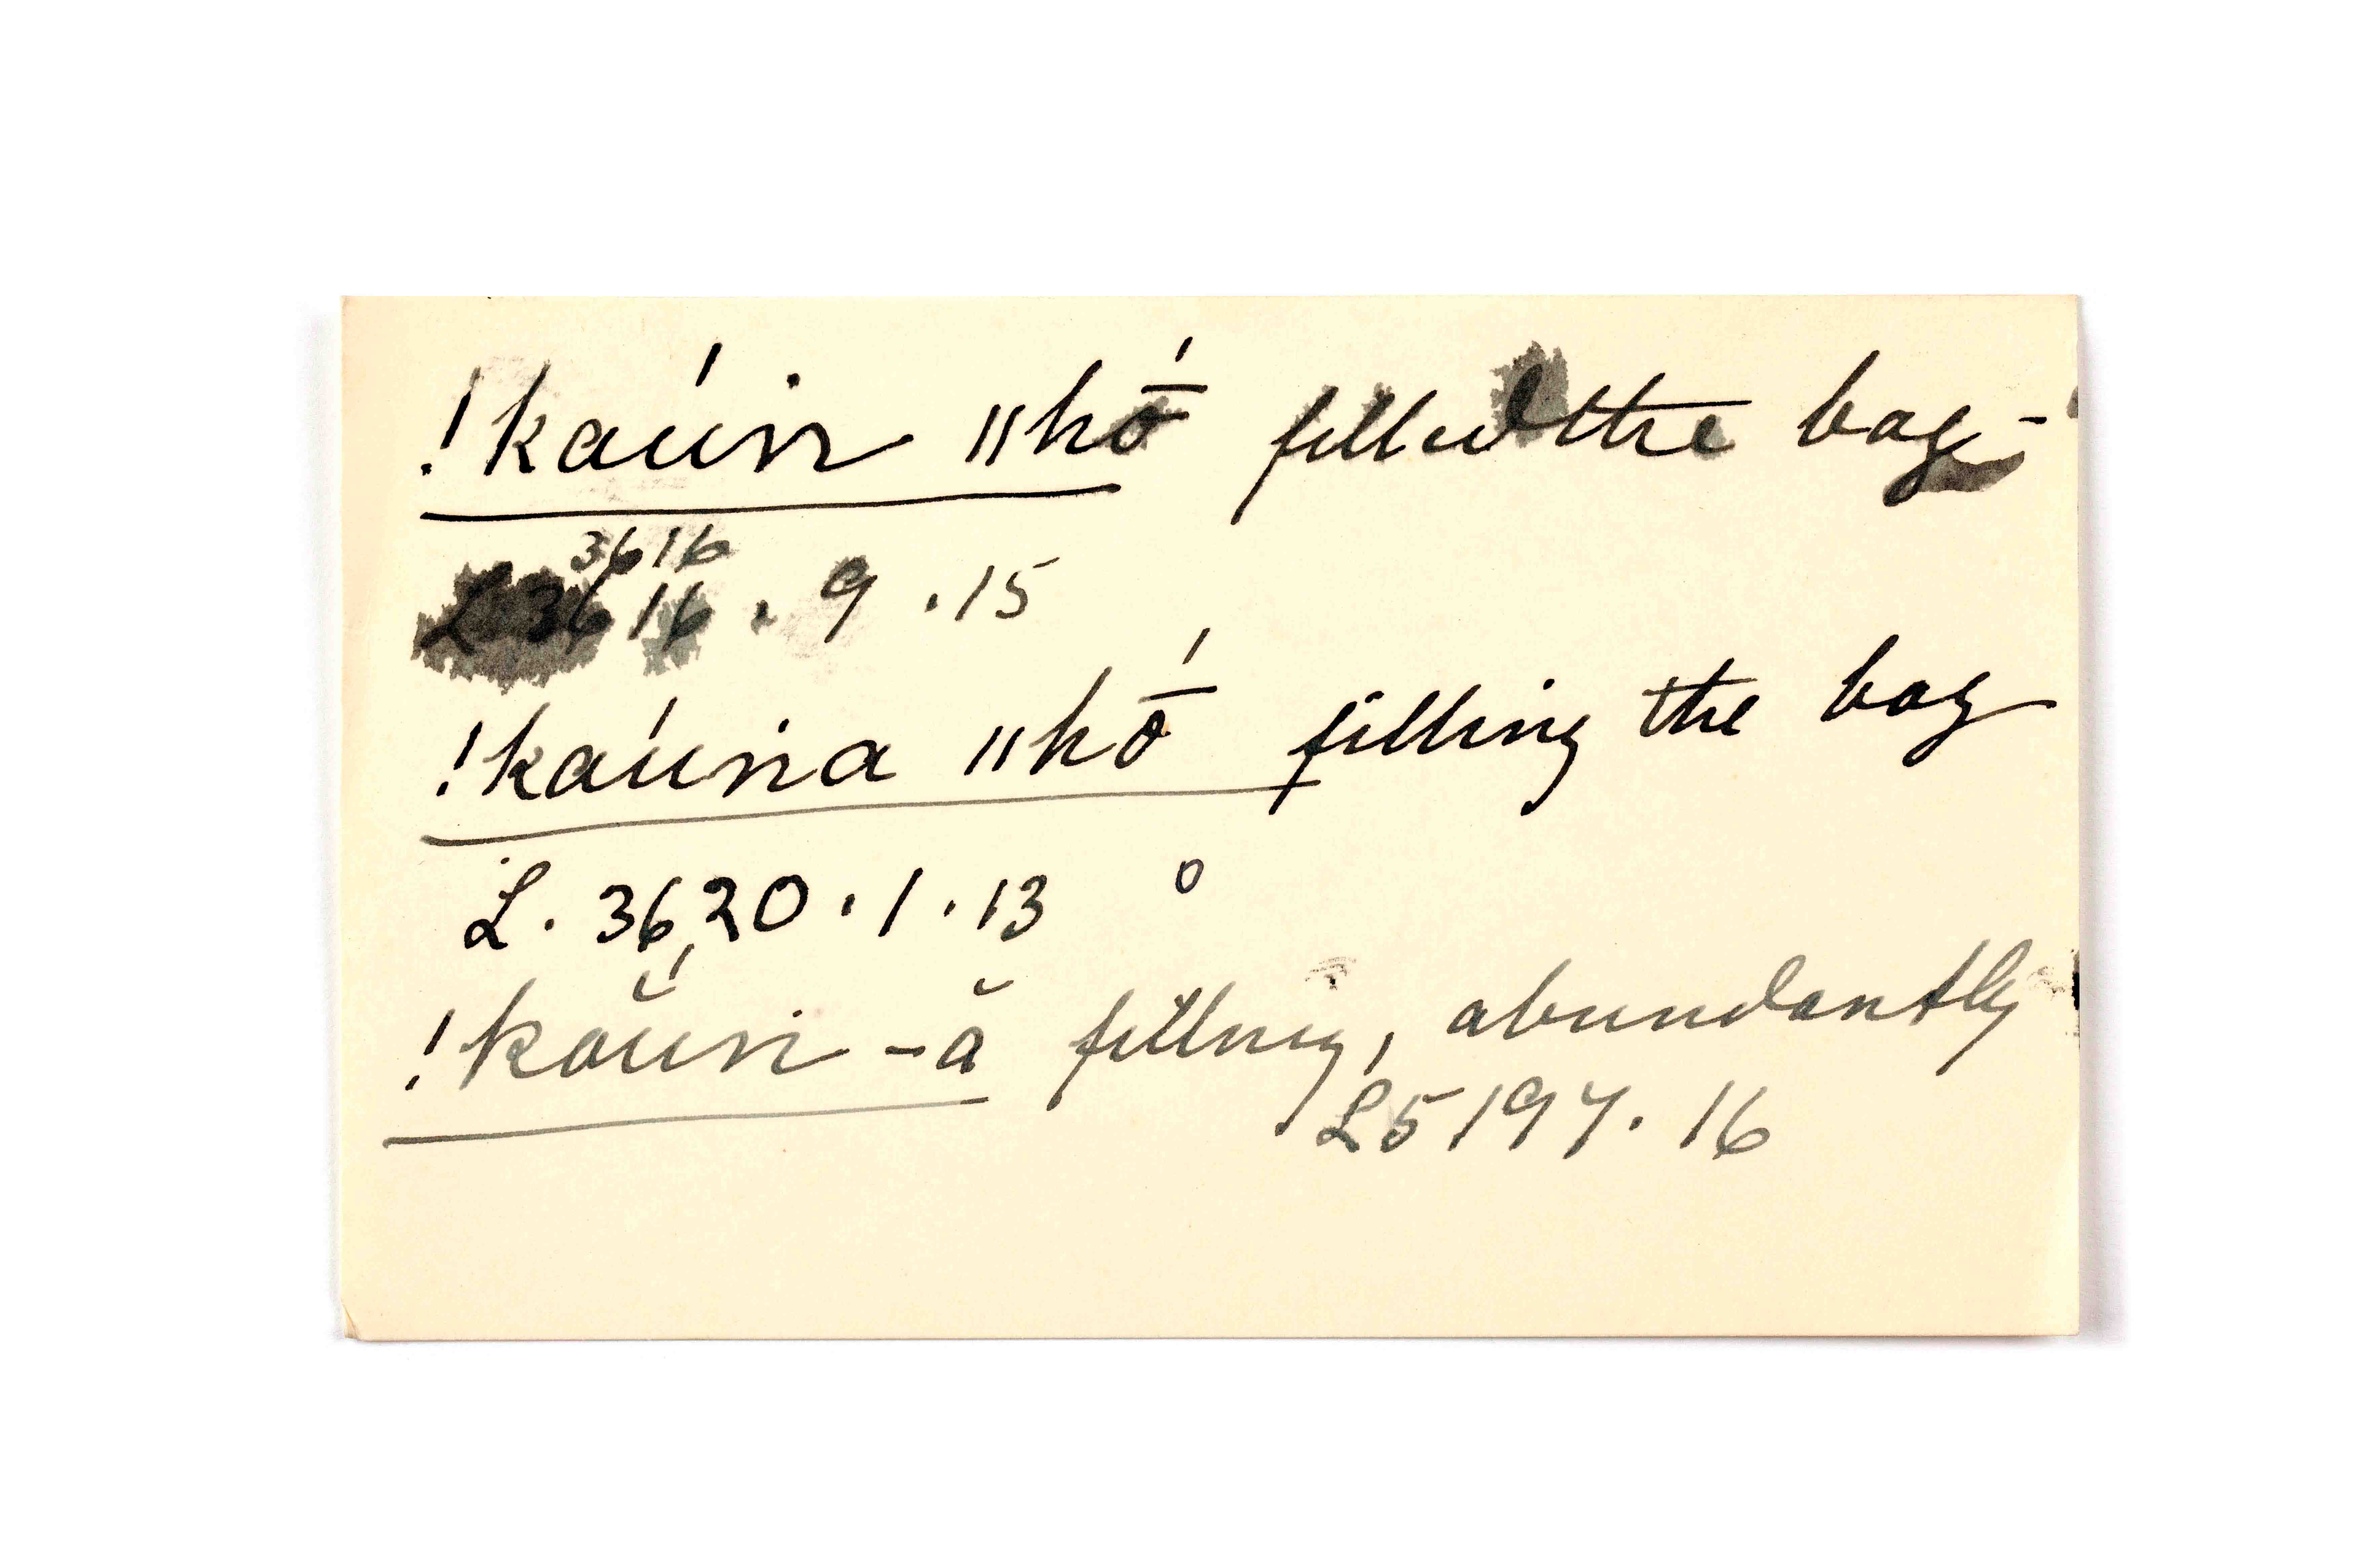 !kaúïn ǁhṓ filled the bag-
3616
L 3616 . 9 . 15
!kaúïna ǁhṓ filling the bag
L. 3620 . 1 . 13 o
!kăúïn -ă filling, abundantly
L5197. 16